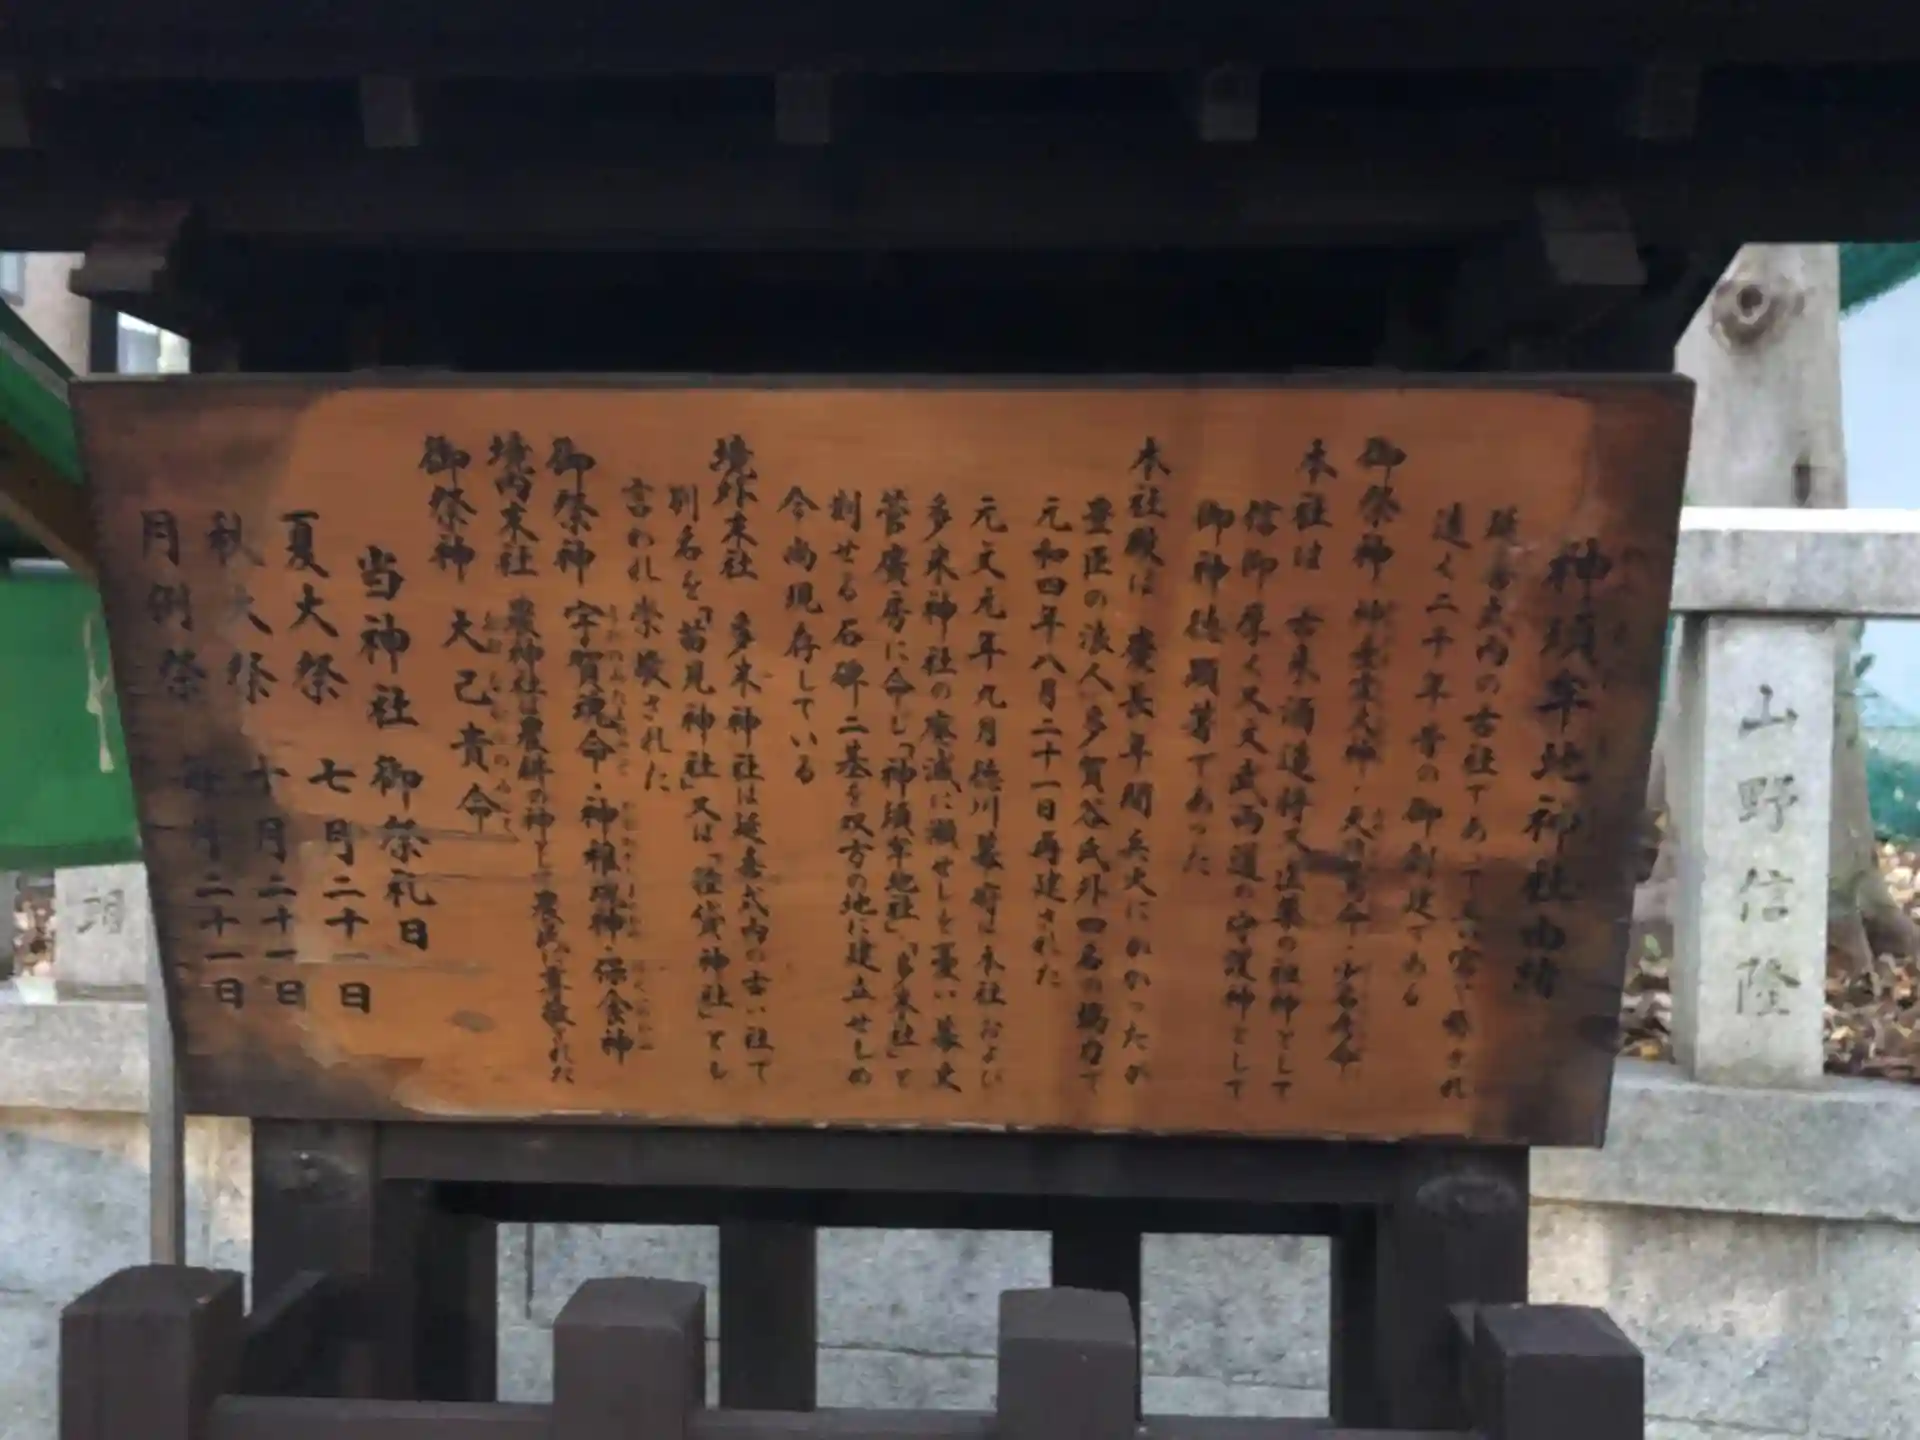 神須牟地神社由緒
延喜式内の古社であって
遠く二千年昔の御創建である
御祭神 神 大神・天 命・少名彦命
本社は 古来酒造 又 薬の祖神として
信仰厚く又文武両道の守護神として
御神徳顕著であった
本社殿は 慶長年間兵火にかかったため
豊臣の浪人多賀谷氏外四名の協力で
元和四年八月二十一日再建された
元文元年九月徳川幕府は本社および
多米神社の廃滅に瀕せしを憂い幕吏
菅廣房に命じ「神須牟地社」「多米社」と
刻せる石碑二基を双方の地に建立せしめ
今尚現存している
境外末社 多米神社は延喜式内の古い社で
別名を「苗見神社」又は「種貸神社」とも
言われ崇敬された
御祭神 宇賀魂命・神稚魂神・保食神
境内末社 農神社は農耕の神として農民に尊敬された
御祭神 大己貴命
当神社 御祭礼日
夏大祭 七月二十一日
秋大祭 十月二十一日
月例祭 毎月二十一日
山野信隆